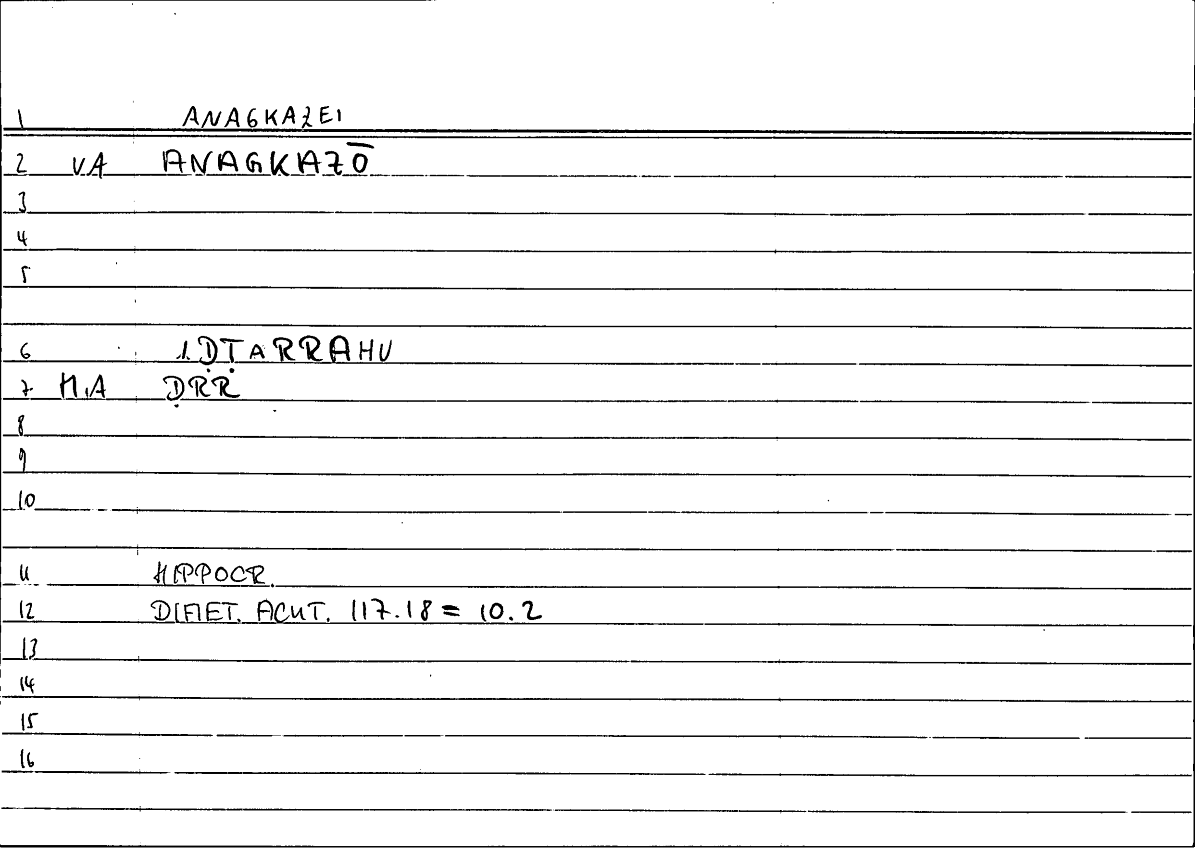 1 ANAGKAZEI
2 VA ANAGKAZŌ
3
4
5
6 1.ḌṬARRAHU
7 M.A ḌRR
8
9
10
11 HIPPOCR.
12 DIAET. ACUT. 117.18 = 10.2
13
14
15
16